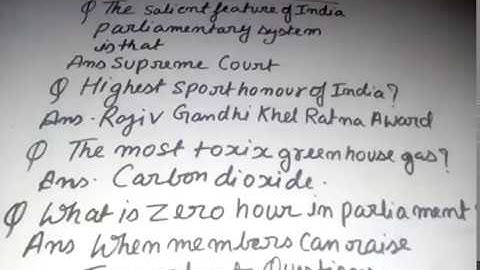 Q The salient feature of India
parliamentary system
is that
Ans Supreme Court
Q Highest sport honour of India?
Ans. Rajiv Gandhi Khel Ratna Award
Q The most toxix greenhouse gas?
Ans. Carbon dioxide.
Q What is Zero hour in parliament?
Ans When members can raise
Important Questions